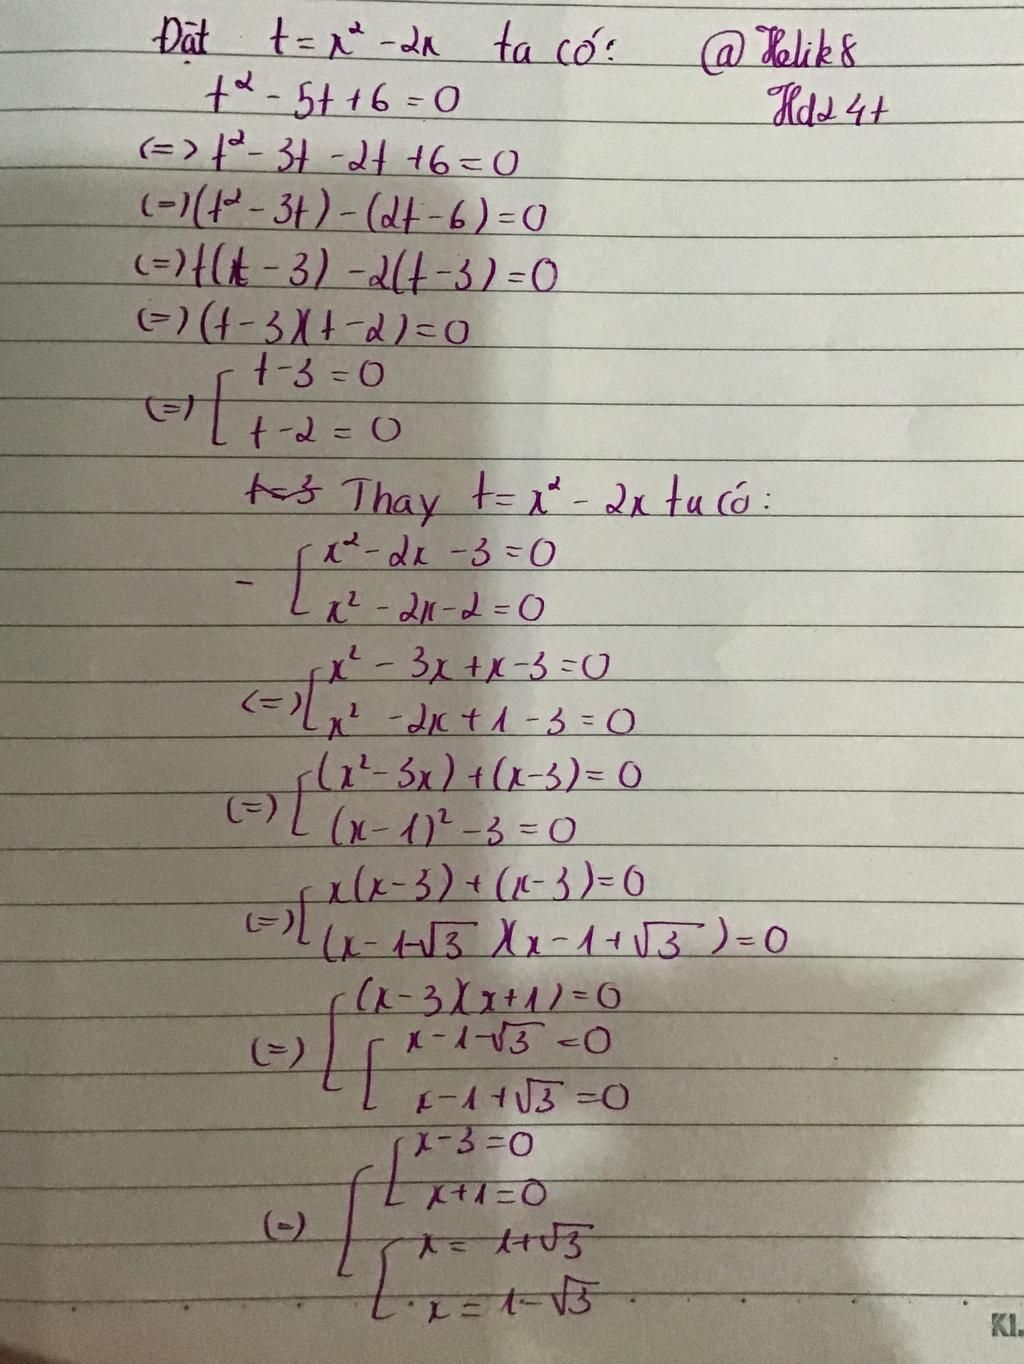 Đặt t = x² - 2x ta có: @Helik8
Hd24t
t² - 5t + 6 = 0
(=> t² - 3t - 2t + 6 = 0
(=) (t² - 3t) - (2t - 6) = 0
(=) t(t - 3) - 2(t - 3) = 0
(=) (t - 3)(t - 2) = 0
t - 3 = 0
(=) [
t - 2 = 0
t=3 Thay t = x² - 2x ta có:
x² - 2x - 3 = 0
- [
x² - 2x - 2 = 0
x² - 3x + x - 3 = 0
(=) [
x² - 2x + 1 - 3 = 0
(x² - 3x) + (x - 3) = 0
(=) [
(x - 1)² - 3 = 0
x(x - 3) + (x - 3) = 0
(=) [
(x - 1 - √3)(x - 1 + √3) = 0
(x - 3)(x + 1) = 0
(=) [ x - 1 - √3 = 0
[
x - 1 + √3 = 0
x - 3 = 0
[
x + 1 = 0
(=) [
x = 1 + √3
[
x = 1 - √3
KI.